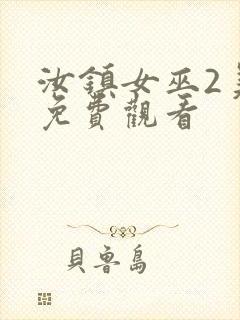 汝鎮女巫2
免費觀看
貝魯島